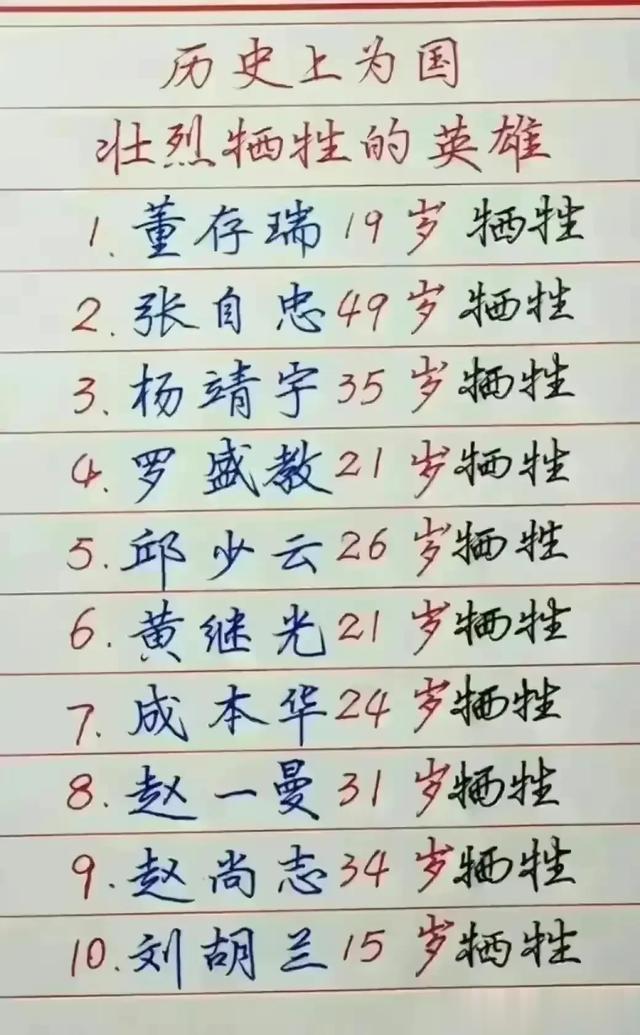 历史上为国
壮烈牺牲的英雄
1. 董存瑞 19岁 牺牲
2. 张自忠 49岁 牺牲
3. 杨靖宇 35岁 牺牲
4. 罗盛教 21岁 牺牲
5. 邱少云 26岁 牺牲
6. 黄继光 21岁 牺牲
7. 成本华 24岁 牺牲
8. 赵一曼 31岁 牺牲
9. 赵尚志 34岁 牺牲
10. 刘胡兰 15岁 牺牲